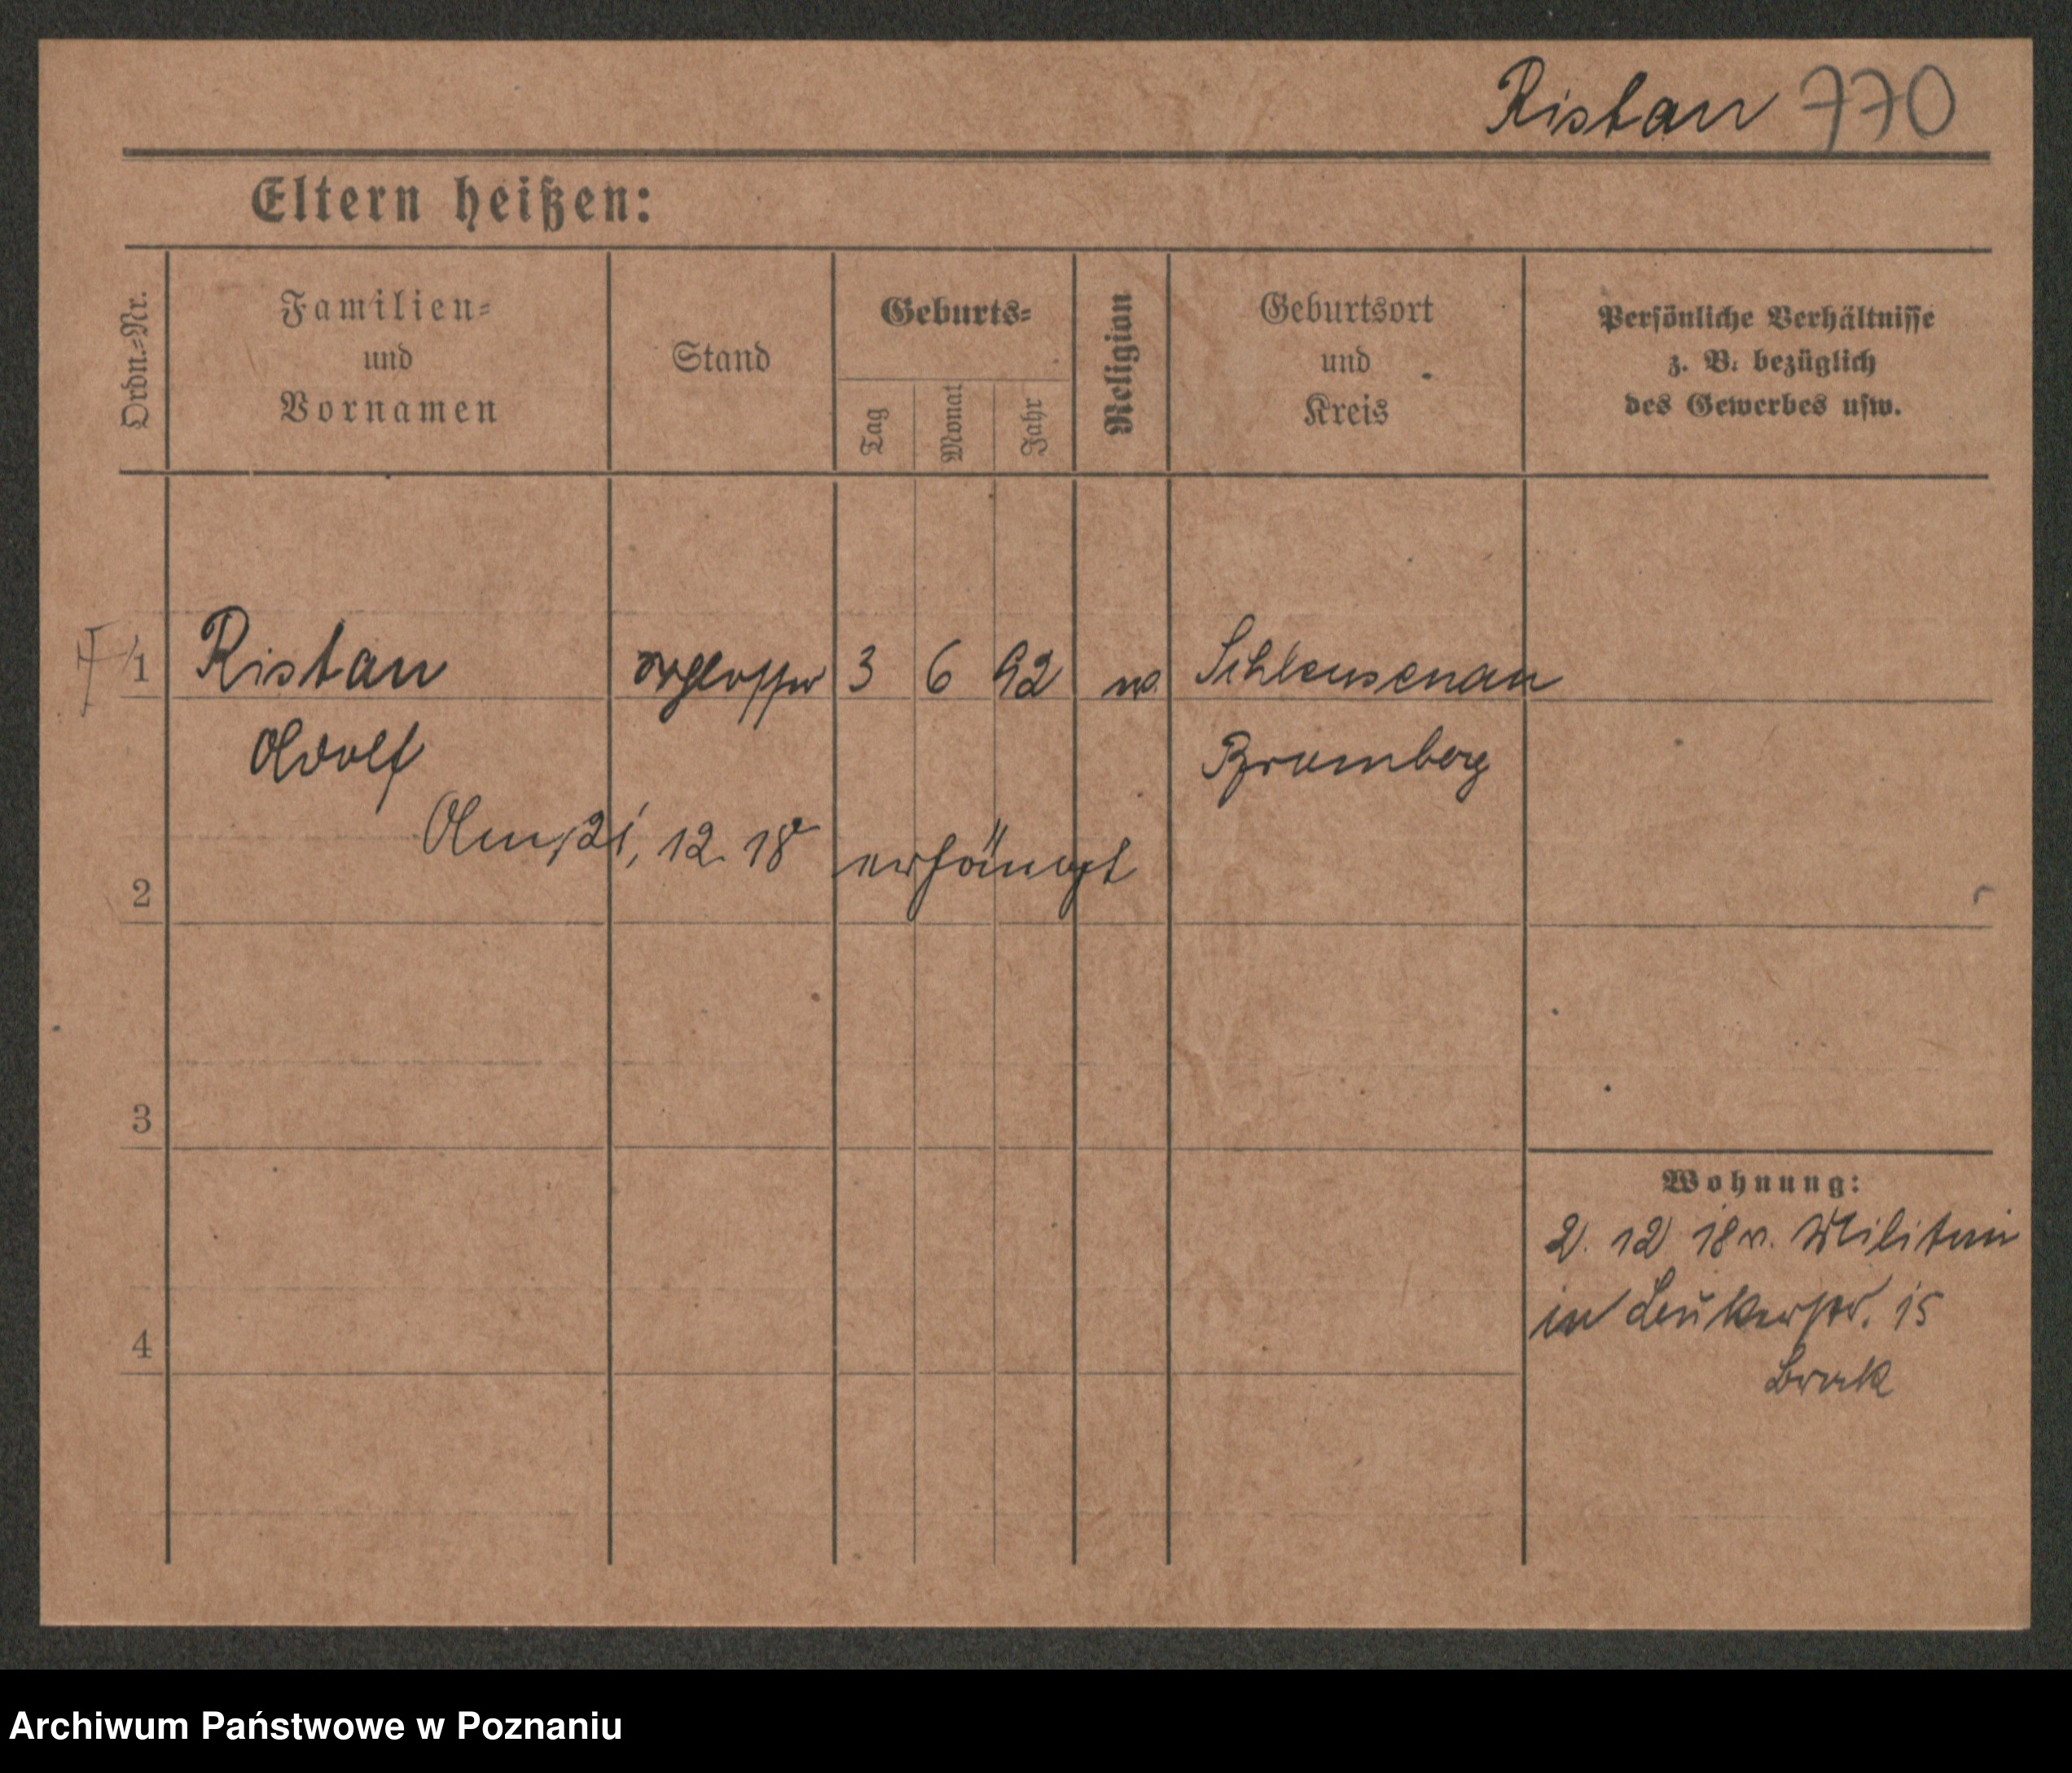 Ristau 770
Eltern heißen:
Ordn.-Nr.
Familien-
und
Vornamen
Stand
Geburts-
Tag
Monat
Jahr
Religion
Geburtsort
und
Kreis
Persönliche Verhältnisse
z. B. bezüglich
des Gewerbes usw.
1 Ristau 3 6 92 Schleusenau
Adolf Bromberg
Am 21. 12. 18 erhängt
2
3
4
Wohnung:
2. 12 18 v. Militär
in 15